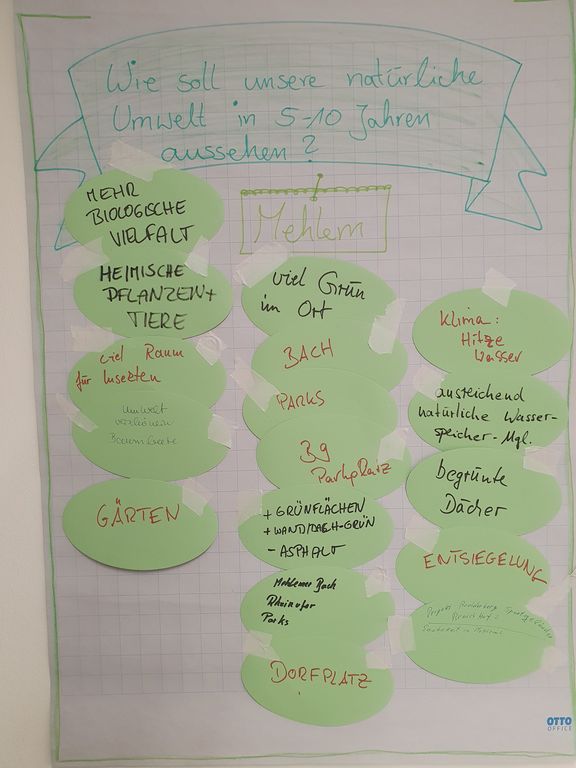 Wie soll unsere natürliche
Umwelt in 5-10 Jahren
aussehen?
Mehlem
MEHR
BIOLOGISCHE
VIELFALT
HEIMISCHE
PFLANZEN+
TIERE
viel Raum
für Insekten
Umwelt
verschönern
GÄRTEN
viel Grün
im Ort
BACH
PARKS
B9
Parkplatz
+ GRÜNFLÄCHEN
+ WAND/DACH-GRÜN
- ASPHALT
Mehlemer Bach
Rheinufer
Parks
DORFPLATZ
Klima:
Hitze
Wasser
ausreichend
natürliche Wasser-
speicher-Mgl.
begrünte
Dächer
ENTSIEGELUNG
OTTO
OFFICE